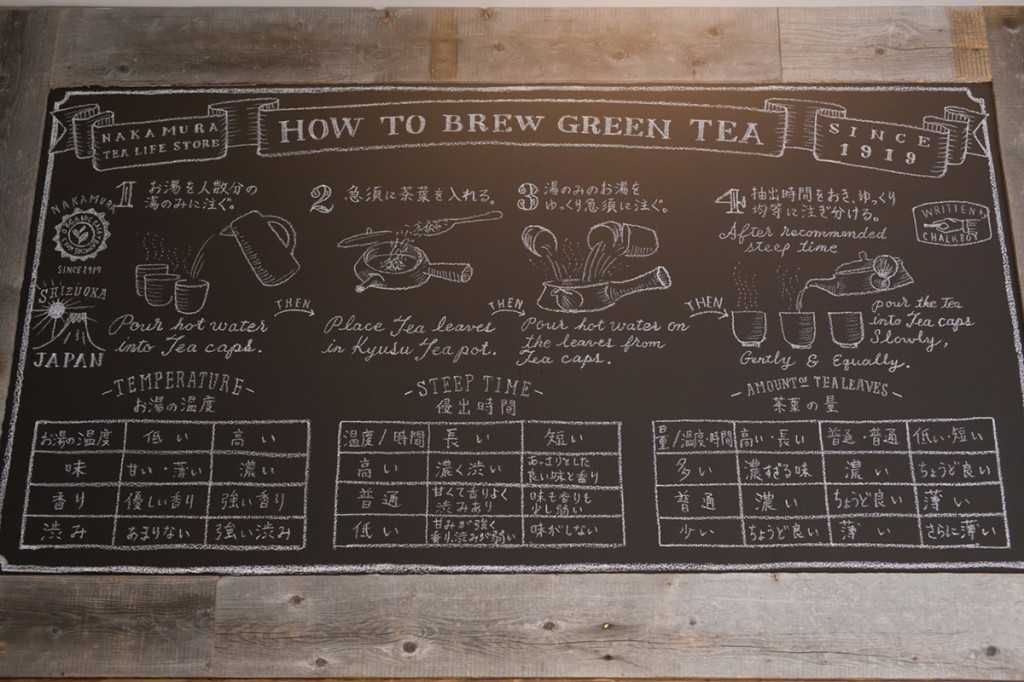 NAKAMURA
TEA LIFE STORE
HOW TO BREW GREEN TEA
SINCE
1919
NAKAMURA
SINCE 1919
SHIZUOKA
JAPAN
1 お湯を人数分の
湯のみに注ぐ。
Pour hot water
into Tea caps.
THEN
2 急須に茶葉を入れる。
Place Tea leaves
in Kyusu Tea pot.
THEN
3 湯のみのお湯を
ゆっくり急須に注ぐ。
Pour hot water on
the leaves from
Tea caps.
THEN
4 抽出時間をおき、ゆっくり
均等に注ぎ分ける。
After recommended
steep time
pour the tea
into Tea caps
Slowly,
Gently & Equally.
WRITTEN
CHALKBOY
TEMPERATURE
お湯の温度
お湯の温度 低い 高い
味 甘い・薄い 濃い
香り 優しい香り 強い香り
渋み あまりない 強い渋み
STEEP TIME
侵出時間
温度/時間 長い 短い
高い 濃く渋い あっさりとした
良い味と香り
普通 甘くて香りよく
渋みあり 味も香りも
少し弱い
低い 甘みが強く
香り、渋みが弱い 味がしない
AMOUNT OF TEA LEAVES
茶葉の量
量/温度・時間 高い・長い 普通・普通 低い・短い
多い 濃すぎる味 濃い ちょうど良い
普通 濃い ちょうど良い 薄い
少い ちょうど良い 薄い さらに薄い